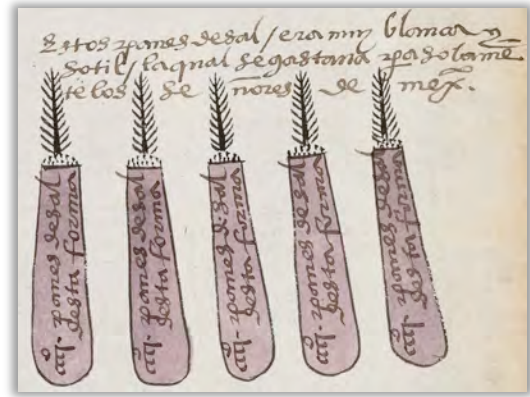 Estos panes desal / era muy blanca y
sotil / laqual segastaua pa solamē
te los Se ñores de mexº.
panes desal
desta forma
panes desal
desta forma
panes desal
desta forma
panes desal
desta forma
panes desal
desta forma